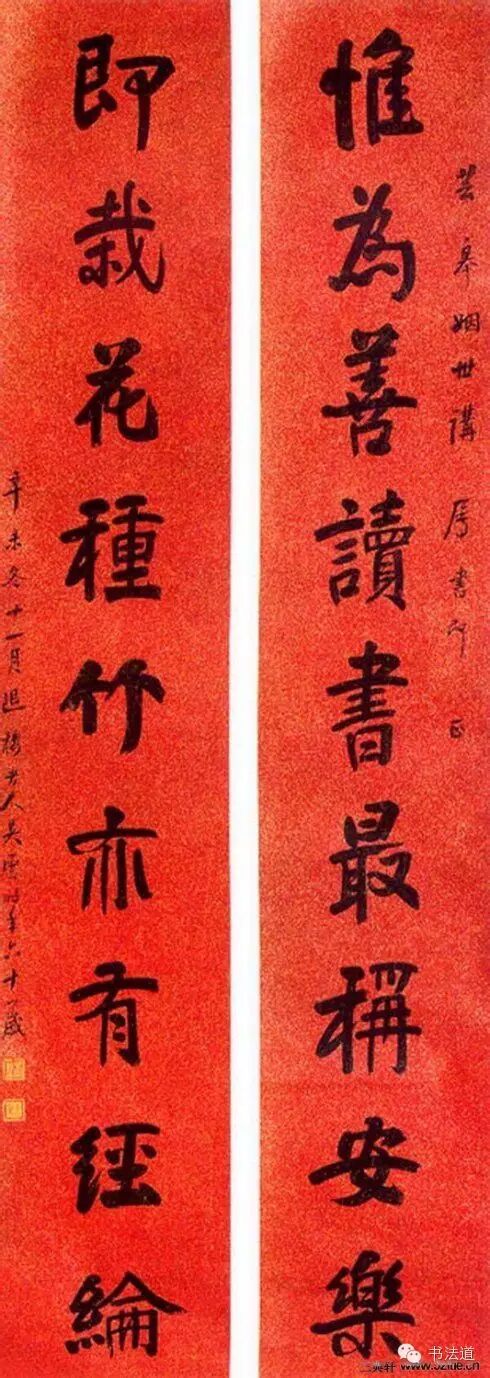 惟為善讀書最稱安樂
芸皋姻世講屬書即正
即栽花種竹亦有經綸
辛未冬十一月退樓老人吳雲時年六十一歲
书法道
www.52fde.cn